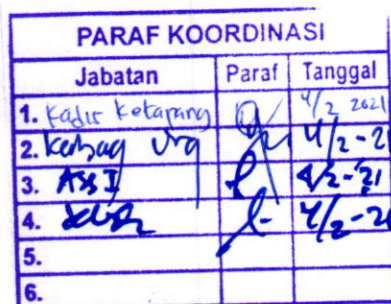 PARAF KOORDINASI
Jabatan Paraf Tanggal
1. Kadis Ketapang 4/2 2021
2. Kabag 4/2-21
3. Ass I 4/2-'21
4. 4/2-21
5.
6.